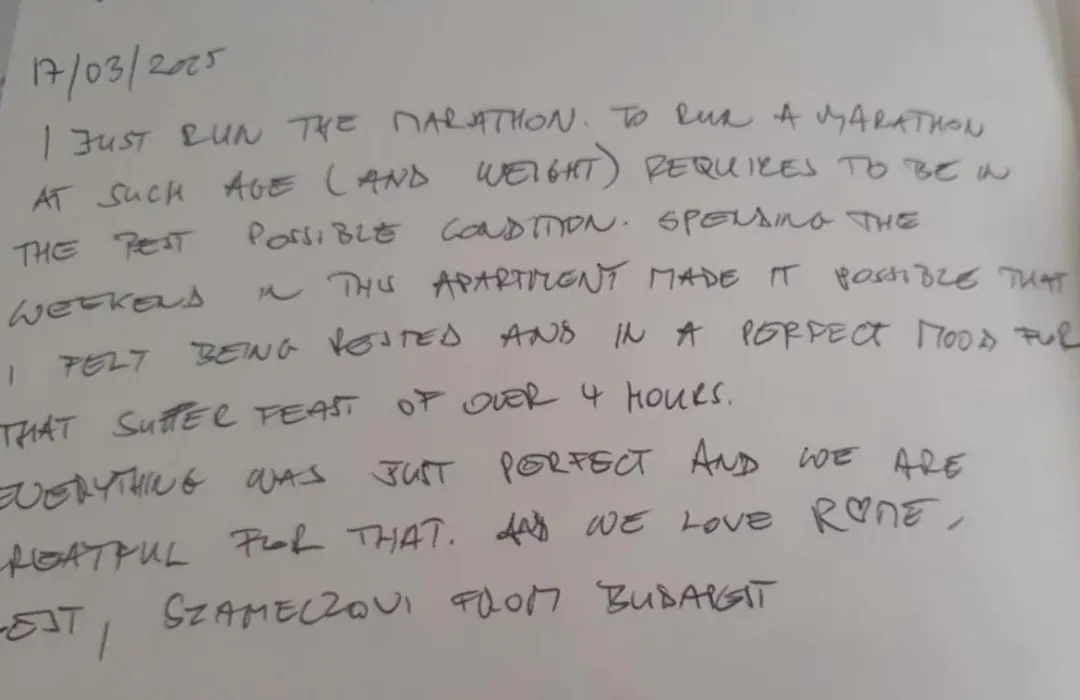 17/03/2025
I JUST RUN THE MARATHON. TO RUN A MARATHON
AT SUCH AGE (AND WEIGHT) REQUIRES TO BE IN
THE BEST POSSIBLE CONDITION. SPENDING THE
WEEKEND IN THIS APARTMENT MADE IT POSSIBLE THAT
I FELT BEING RESTED AND IN A PERFECT MOOD FOR
THAT SUFFER FEAST OF OVER 4 HOURS.
EVERYTHING WAS JUST PERFECT AND WE ARE
REATFUL FOR THAT. AND WE LOVE R♡ME,
EST, FROM BUDAPEST